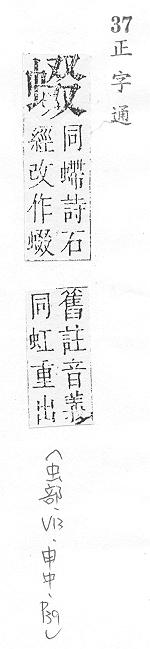 37 正字通
蝃
同螮詩石
經改作蝃
舊註音義
同虹重出
(虫部、V13、申中、P39)